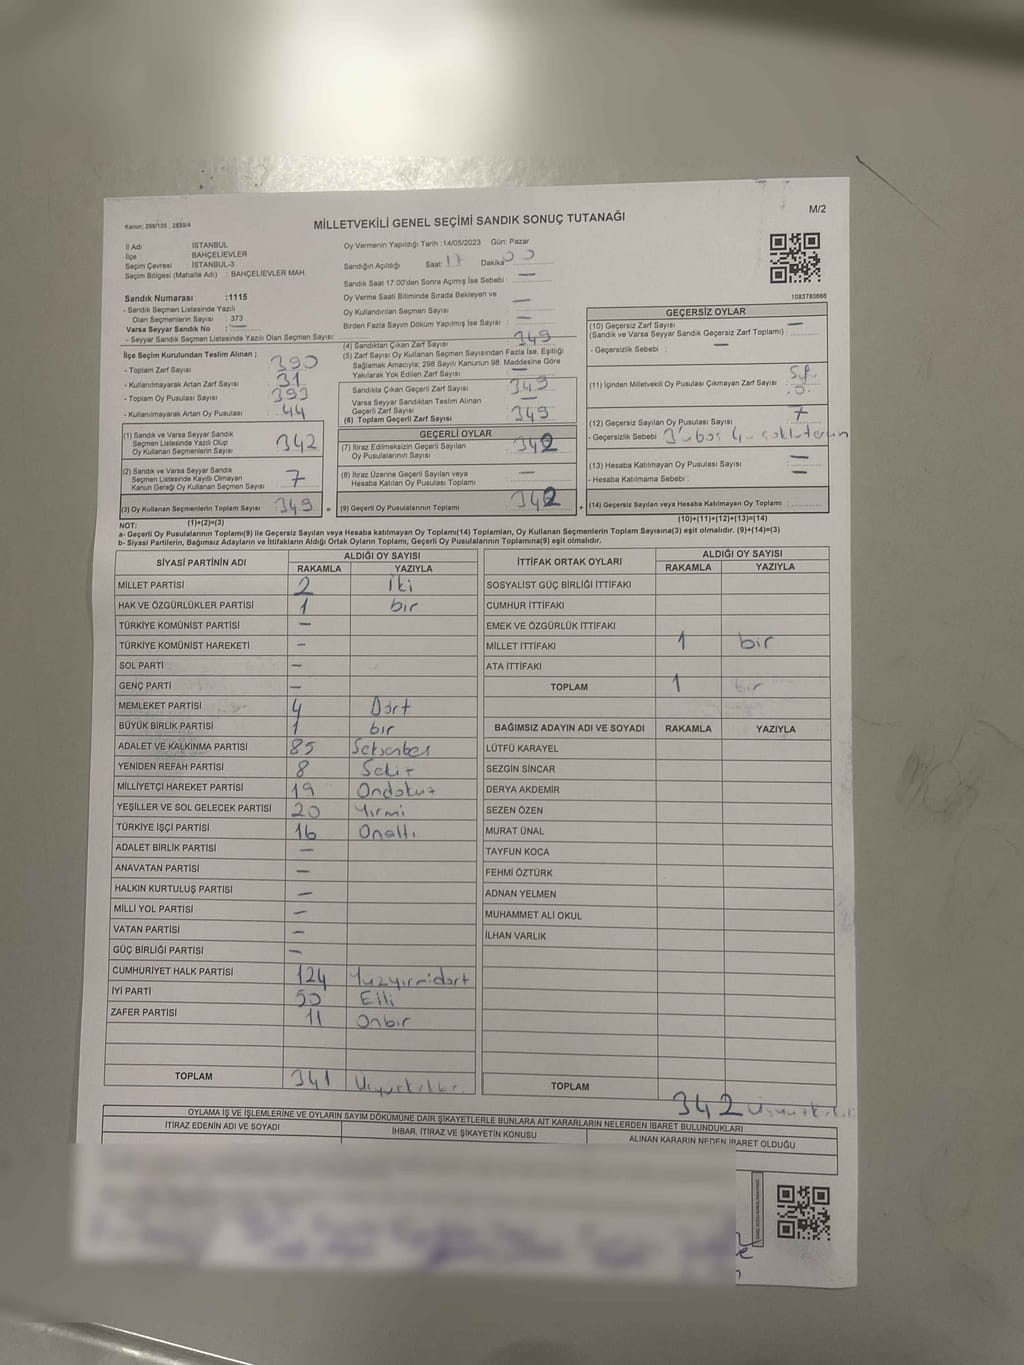 M/2
Kanun; 298/105 , 2839/4
MİLLETVEKİLİ GENEL SEÇİMİ SANDIK SONUÇ TUTANAĞI
İl Adı : İSTANBUL
İlçe : BAHÇELİEVLER
Seçim Çevresi : İSTANBUL-3
Seçim Bölgesi (Mahalle Adı) : BAHÇELİEVLER MAH.
Sandık Numarası :1115
- Sandık Seçmen Listesinde Yazılı
Olan Seçmenlerin Sayısı : 373
Varsa Seyyar Sandık No : —
- Seyyar Sandık Seçmen Listesinde Yazılı Olan Seçmen Sayısı:
İlçe Seçim Kurulundan Teslim Alınan ;
- Toplam Zarf Sayısı : 390
- Kullanılmayarak Artan Zarf Sayısı : 31
- Toplam Oy Pusulası Sayısı : 393
- Kullanılmayarak Artan Oy Pusulası : 44
(1) Sandık ve Varsa Seyyar Sandık
Seçmen Listesinde Yazılı Olup
Oy Kullanan Seçmenlerin Sayısı 342
(2) Sandık ve Varsa Seyyar Sandık
Seçmen Listesinde Kayıtlı Olmayan
Kanun Gereği Oy Kullanan Seçmen Sayısı 7
(3) Oy Kullanan Seçmenlerin Toplam Sayısı 349
(1)+(2)=(3)
Oy Vermenin Yapıldığı Tarih : 14/05/2023 Gün: Pazar
Sandığın Açıldığı Saat: 17 Dakika: 00
Sandık Saat 17.00'den Sonra Açımış İse Sebebi : —
Oy Verme Saati Bitiminde Sırada Bekleyen ve
Oy Kullandırılan Seçmen Sayısı : —
Birden Fazla Sayım Döküm Yapılmış İse Sayısı : —
(4) Sandıktan Çıkan Zarf Sayısı : 349
(5) Zarf Sayısı Oy Kullanan Seçmen Sayısından Fazla İse, Eşitliği
Sağlamak Amacıyla; 298 Sayılı Kanunun 98. Maddesine Göre
Yakılarak Yok Edilen Zarf Sayısı : —
Sandıkta Çıkan Geçerli Zarf Sayısı : 349
Varsa Seyyar Sandıktan Teslim Alınan
Geçerli Zarf Sayısı : —
(6) Toplam Geçerli Zarf Sayısı : 349
GEÇERLİ OYLAR
(7) İtiraz Edilmeksizin Geçerli Sayılan
Oy Pusulalarının Sayısı : 342
(8) İtiraz Üzerine Geçerli Sayılan veya
Hesaba Katılan Oy Pusulası Toplamı : —
(9) Geçerli Oy Pusulalarının Toplamı : 342
1083780666
GEÇERSİZ OYLAR
(10) Geçersiz Zarf Sayısı : —
(Sandık ve Varsa Seyyar Sandık Geçersiz Zarf Toplamı)
- Geçersizlik Sebebi : —
(11) İçinden Milletvekili Oy Pusulası Çıkmayan Zarf Sayısı :
(12) Geçersiz Sayılan Oy Pusulası Sayısı : 7
- Geçersizlik Sebebi : 3
(13) Hesaba Katılmayan Oy Pusulası Sayısı : —
- Hesaba Katılmama Sebebi : —
(14) Geçersiz Sayılan veya Hesaba Katılmayan Oy Toplamı :
(10)+(11)+(12)+(13)=(14)
NOT:
a- Geçerli Oy Pusulalarının Toplamı(9) ile Geçersiz Sayılan veya Hesaba katılmayan Oy Toplamı(14) Toplamları, Oy Kullanan Seçmenlerin Toplam Sayısına(3) eşit olmalıdır. (9)+(14)=(3)
b- Siyasi Partilerin, Bağımsız Adayların ve İttifakların Aldığı Ortak Oyların Toplamı, Geçerli Oy Pusulalarının Toplamına(9) eşit olmalıdır.
SİYASİ PARTİNİN ADI ALDIĞI OY SAYISI
RAKAMLA YAZIYLA
MİLLET PARTİSİ 2 İki
HAK VE ÖZGÜRLÜKLER PARTİSİ 1 bir
TÜRKİYE KOMÜNİST PARTİSİ —
TÜRKİYE KOMÜNİST HAREKETİ -
SOL PARTİ —
GENÇ PARTİ —
MEMLEKET PARTİSİ 4 Dört
BÜYÜK BİRLİK PARTİSİ 1 bir
ADALET VE KALKINMA PARTİSİ 85 Seksenbeş
YENİDEN REFAH PARTİSİ 8 Sekiz
MİLLİYETÇİ HAREKET PARTİSİ 19 Ondokuz
YEŞİLLER VE SOL GELECEK PARTİSİ 20 Yirmi
TÜRKİYE İŞÇİ PARTİSİ 16 Onaltı
ADALET BİRLİK PARTİSİ —
ANAVATAN PARTİSİ —
HALKIN KURTULUŞ PARTİSİ —
MİLLİ YOL PARTİSİ —
VATAN PARTİSİ —
GÜÇ BİRLİĞİ PARTİSİ —
CUMHURİYET HALK PARTİSİ 124 Yüzyirmidört
İYİ PARTİ 50 Elli
ZAFER PARTİSİ 11 Onbir
TOPLAM 341
İTTİFAK ORTAK OYLARI ALDIĞI OY SAYISI
RAKAMLA YAZIYLA
SOSYALİST GÜÇ BİRLİĞİ İTTİFAKI
CUMHUR İTTİFAKI
EMEK VE ÖZGÜRLÜK İTTİFAKI
MİLLET İTTİFAKI 1 bir
ATA İTTİFAKI
TOPLAM 1 bir
BAĞIMSIZ ADAYIN ADI VE SOYADI RAKAMLA YAZIYLA
LÜTFÜ KARAYEL
SEZGİN SİNCAR
DERYA AKDEMİR
SEZEN ÖZEN
MURAT ÜNAL
TAYFUN KOCA
FEHMİ ÖZTÜRK
ADNAN YELMEN
MUHAMMET ALİ OKUL
İLHAN VARLIK
TOPLAM
342
OYLAMA İŞ VE İŞLEMLERİNE VE OYLARIN SAYIM DÖKÜMÜNE DAİR ŞİKAYETLERLE BUNLARA AİT KARARLARIN NELERDEN İBARET BULUNDUKLARI
İTİRAZ EDENİN ADI VE SOYADI İHBAR, İTİRAZ VE ŞİKAYETİN KONUSU ALINAN KARARIN NEDEN İBARET OLDUĞU